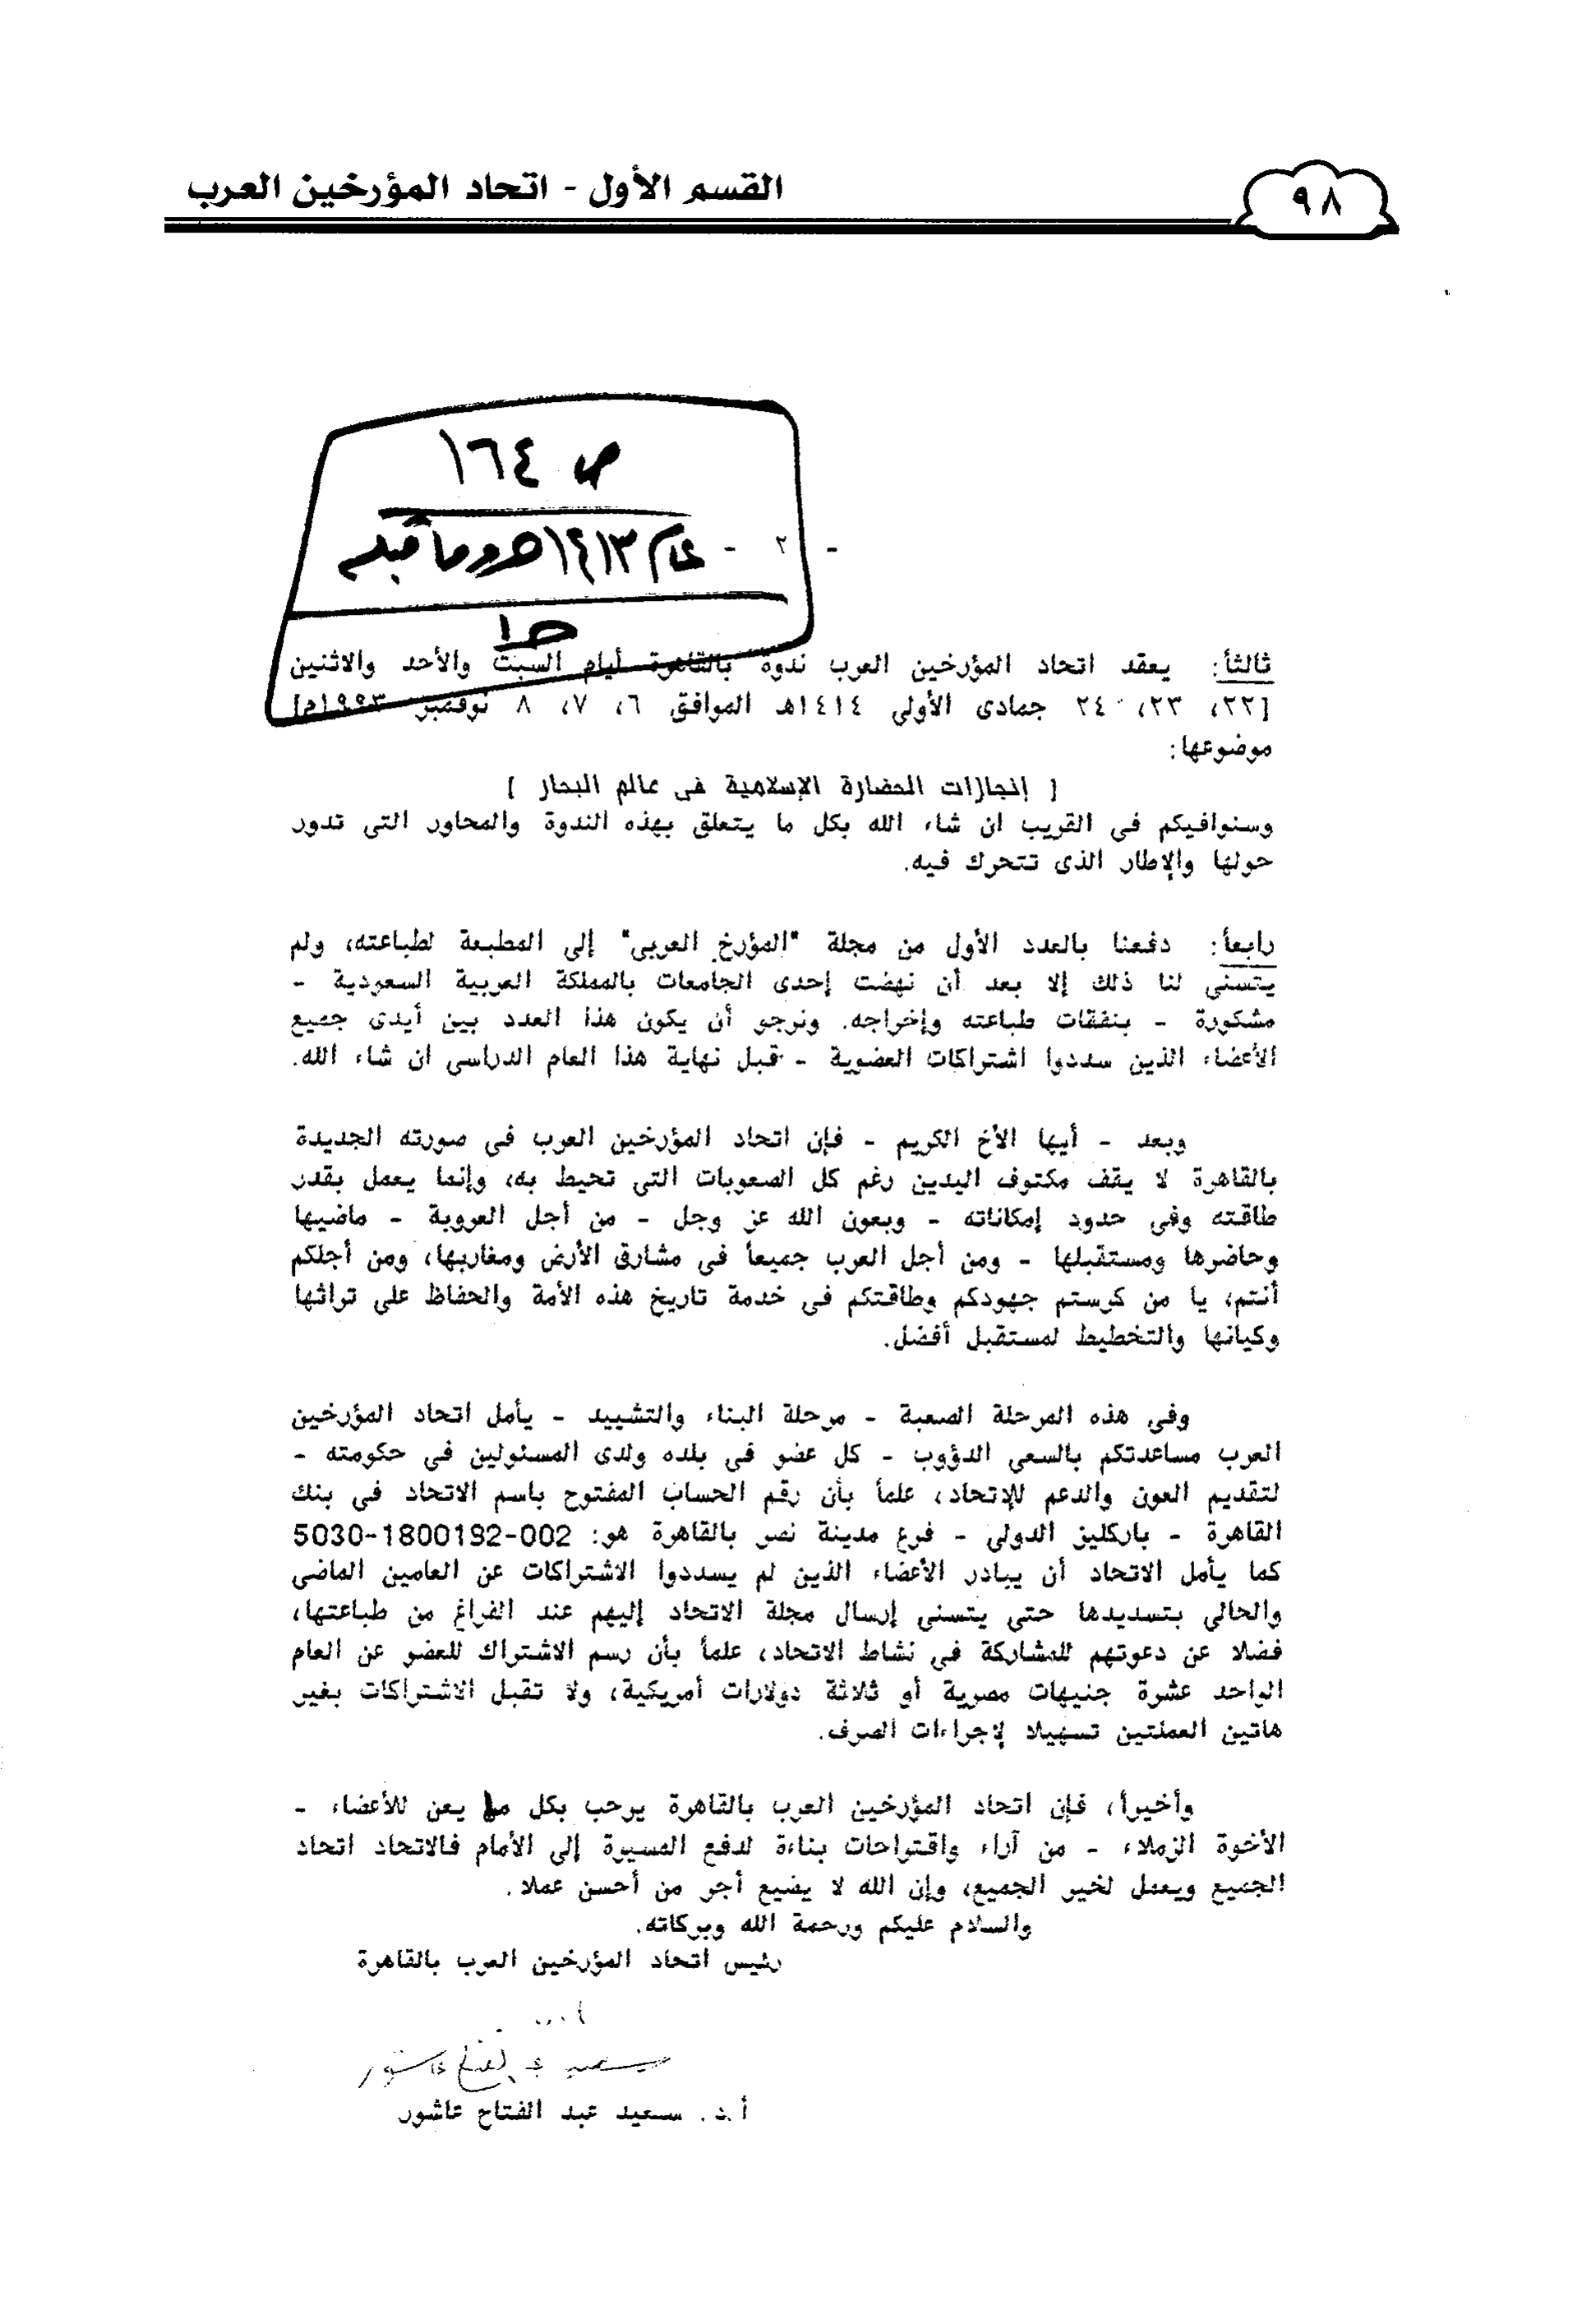 القسم الأول - اتحاد المؤرخين العرب
٩٨
ص ١٦٤
عام ١٤١٣هـ وما قبله
حـ ١
- ٢ -
ثالثاً: يعقد اتحاد المؤرخين العرب ندوة بالقاهرة أيام السبت والأحد والاثنين
[٢٢، ٢٣، ٢٤ جمادى الأولى ١٤١٤هـ الموافق ٦، ٧، ٨ نوفمبر ١٩٩٣م]
موضوعها:
[ إنجازات الحضارة الإسلامية فى عالم البحار ]
وسنوافيكم فى القريب ان شاء الله بكل ما يتعلق بهذه الندوة والمحاور التى تدور
حولها والإطار الذى تتحرك فيه.
رابعاً: دفعنا بالعدد الأول من مجلة "المؤرخ العربى" إلى المطبعة لطباعته، ولم
يتسنى لنا ذلك إلا بعد أن نهضت إحدى الجامعات بالمملكة العربية السعودية -
مشكورة - بنفقات طباعته وإخراجه. ونرجو أن يكون هذا العدد بين أيدى جميع
الأعضاء الذين سددوا اشتراكات العضوية - قبل نهاية هذا العام الدراسى ان شاء الله.
وبعد - أيها الأخ الكريم - فإن اتحاد المؤرخين العرب فى صورته الجديدة
بالقاهرة لا يقف مكتوف اليدين رغم كل الصعوبات التى تحيط به، وإنما يعمل بقدر
طاقته وفى حدود إمكاناته - وبعون الله عز وجل - من أجل العروبة - ماضيها
وحاضرها ومستقبلها - ومن أجل العرب جميعاً فى مشارق الأرض ومغاربها، ومن أجلكم
أنتم، يا من كرستم جهودكم وطاقتكم فى خدمة تاريخ هذه الأمة والحفاظ على تراثها
وكيانها والتخطيط لمستقبل أفضل.
وفى هذه المرحلة الصعبة - مرحلة البناء والتشييد - يأمل اتحاد المؤرخين
العرب مساعدتكم بالسعى الدؤوب - كل عضو فى بلده ولدى المسئولين فى حكومته -
لتقديم العون والدعم للإتحاد، علماً بأن رقم الحساب المفتوح باسم الاتحاد فى بنك
القاهرة - باركليز الدولى - فرع مدينة نصر بالقاهرة هو: 002-1800192-5030
كما يأمل الاتحاد أن يبادر الأعضاء الذين لم يسددوا الاشتراكات عن العامين الماضى
والحالى بتسديدها حتى يتسنى إرسال مجلة الاتحاد إليهم عند الفراغ من طباعتها،
فضلا عن دعوتهم للمشاركة فى نشاط الاتحاد، علماً بأن رسم الاشتراك للعضو عن العام
الواحد عشرة جنيهات مصرية أو ثلاثة دولارات أمريكية، ولا تقبل الاشتراكات بغير
هاتين العملتين تسهيلا لإجراءات الصرف.
وأخيراً، فإن اتحاد المؤرخين العرب بالقاهرة يرحب بكل ما يعن للأعضاء -
الأخوة الزملاء - من آراء واقتراحات بناءة لدفع المسيرة إلى الأمام فالاتحاد اتحاد
الجميع ويعمل لخير الجميع، وإن الله لا يضيع أجر من أحسن عملا.
والسلام عليكم ورحمة الله وبركاته.
رئيس اتحاد المؤرخين العرب بالقاهرة
سعيد عبد الفتاح عاشور
أ.د. سعيد عبد الفتاح عاشور